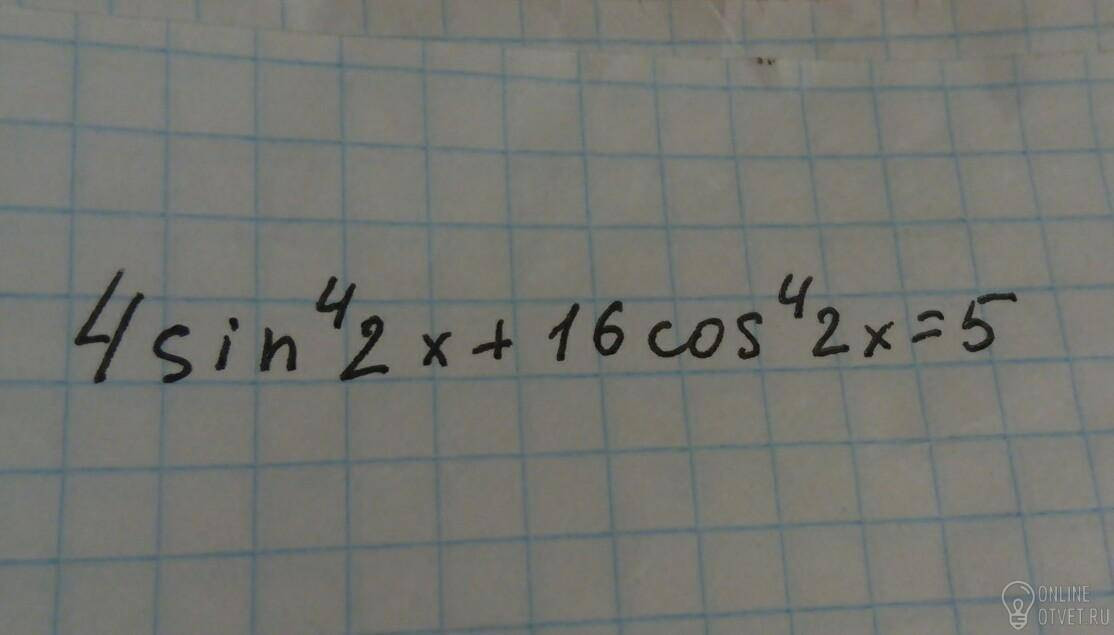 4 sin⁴2x + 16cos⁴2x = 5
ONLINE
OTVET.RU